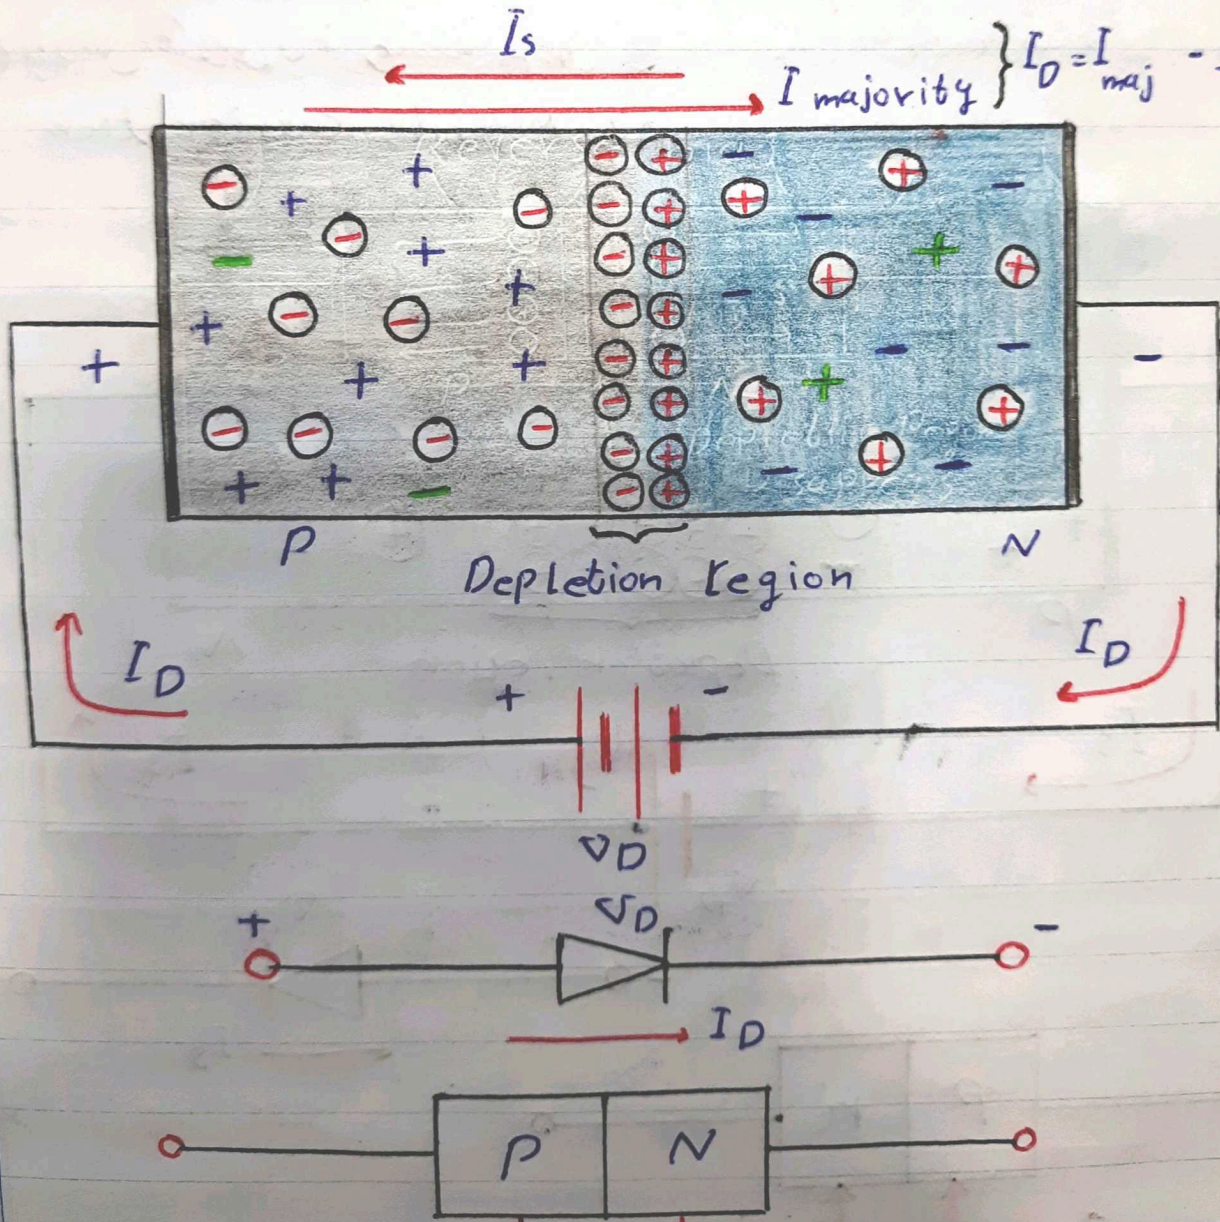 Is
I majority } I_D = I_maj -
+ -
P N
Depletion region
I_D I_D
+ -
V_D
V_D
+ -
I_D
P N